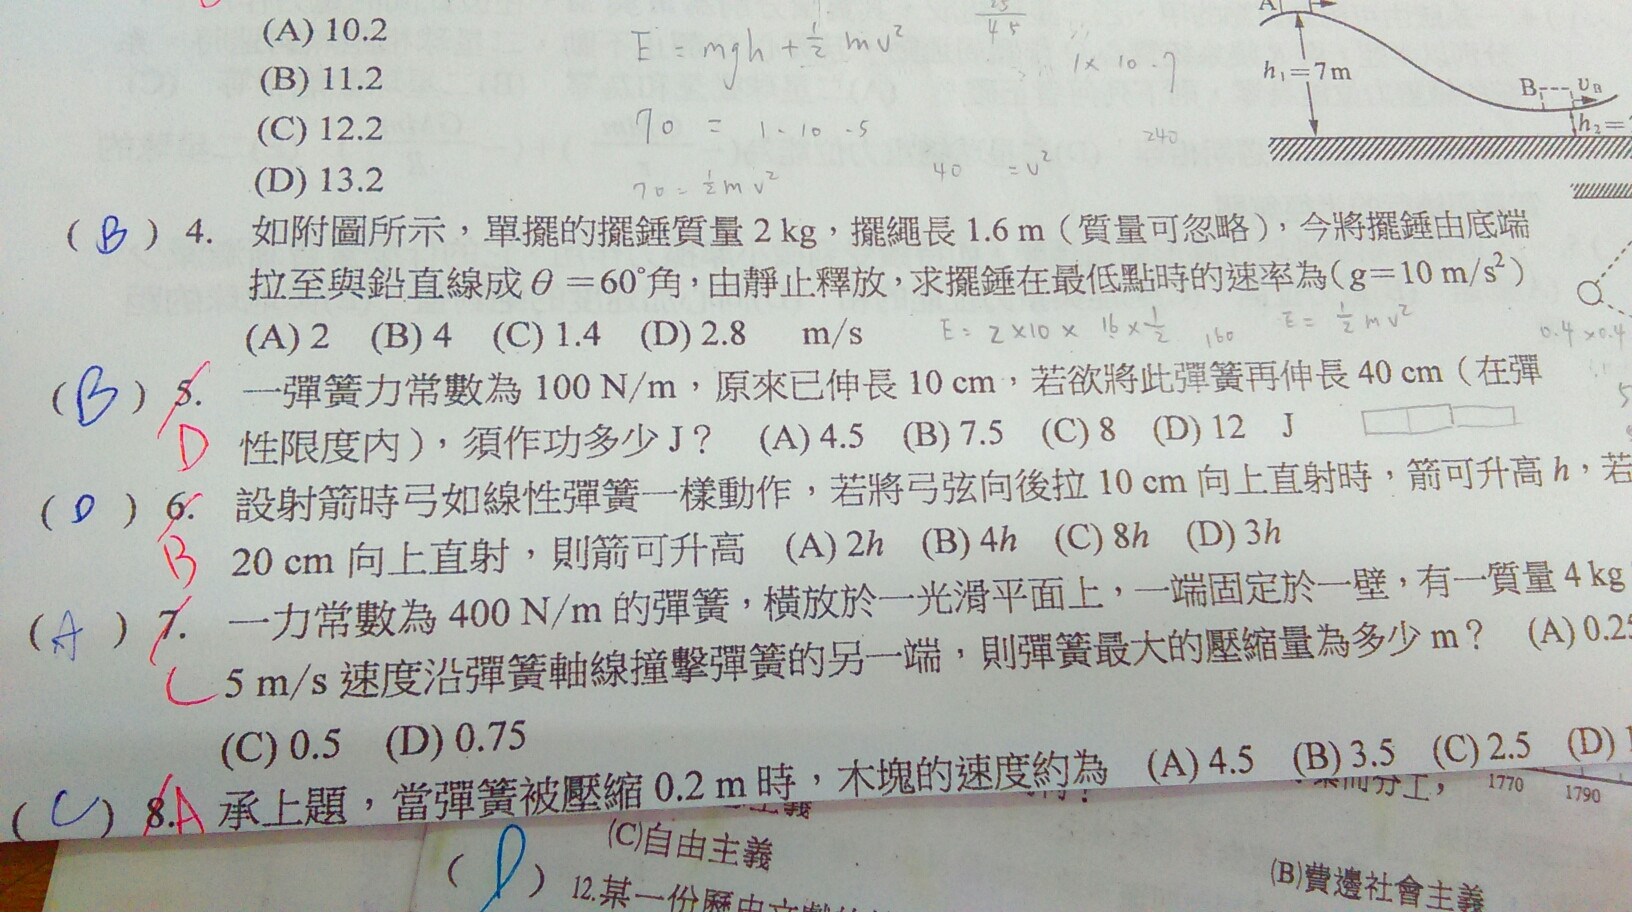 (A) 10.2
(B) 11.2
(C) 12.2
(D) 13.2
E = mgh + ½ mv²
25/45
1 × 10 · 7
70 = 1 · 10 · 5
240
40 = v²
70 = ½ m v²
A
h₁=7m
B
υB
h₂=
( B ) 4. 如附圖所示，單擺的擺錘質量 2 kg，擺繩長 1.6 m（質量可忽略），今將擺錘由底端
拉至與鉛直線成 θ =60°角，由靜止釋放，求擺錘在最低點時的速率為(g=10 m/s²)
(A) 2 (B) 4 (C) 1.4 (D) 2.8 m/s
E = 2 × 10 × 16 × ½ 160 E = ½ m v²
0.4 × 0.4
( B ) 5. 一彈簧力常數為 100 N/m，原來已伸長 10 cm，若欲將此彈簧再伸長 40 cm（在彈
D 性限度內），須作功多少 J？ (A) 4.5 (B) 7.5 (C) 8 (D) 12 J
( D ) 6. 設射箭時弓如線性彈簧一樣動作，若將弓弦向後拉 10 cm 向上直射時，箭可升高 h，若
B 20 cm 向上直射，則箭可升高 (A) 2h (B) 4h (C) 8h (D) 3h
( A ) 7. 一力常數為 400 N/m 的彈簧，橫放於一光滑平面上，一端固定於一壁，有一質量 4 kg
C 5 m/s 速度沿彈簧軸線撞擊彈簧的另一端，則彈簧最大的壓縮量為多少 m？ (A) 0.25
(C) 0.5 (D) 0.75
( C ) 8. A 承上題，當彈簧被壓縮 0.2 m 時，木塊的速度約為 (A) 4.5 (B) 3.5 (C) 2.5 (D) 1
主義
業而分工，
1770
1790
(C)自由主義
(B)費邊社會主義
( D ) 12.某一份歷史文獻